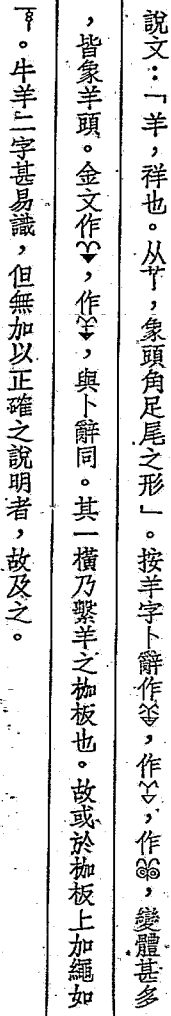 說文：「羊，祥也。从𦫳，象頭角足尾之形」。按羊字卜辭作，作，作，變體甚多
，皆象羊頭。金文作，作，與卜辭同。其一橫乃繫羊之枷板也。故或於枷板上加繩如
。牛羊二字甚易識，但無加以正確之說明者，故及之。